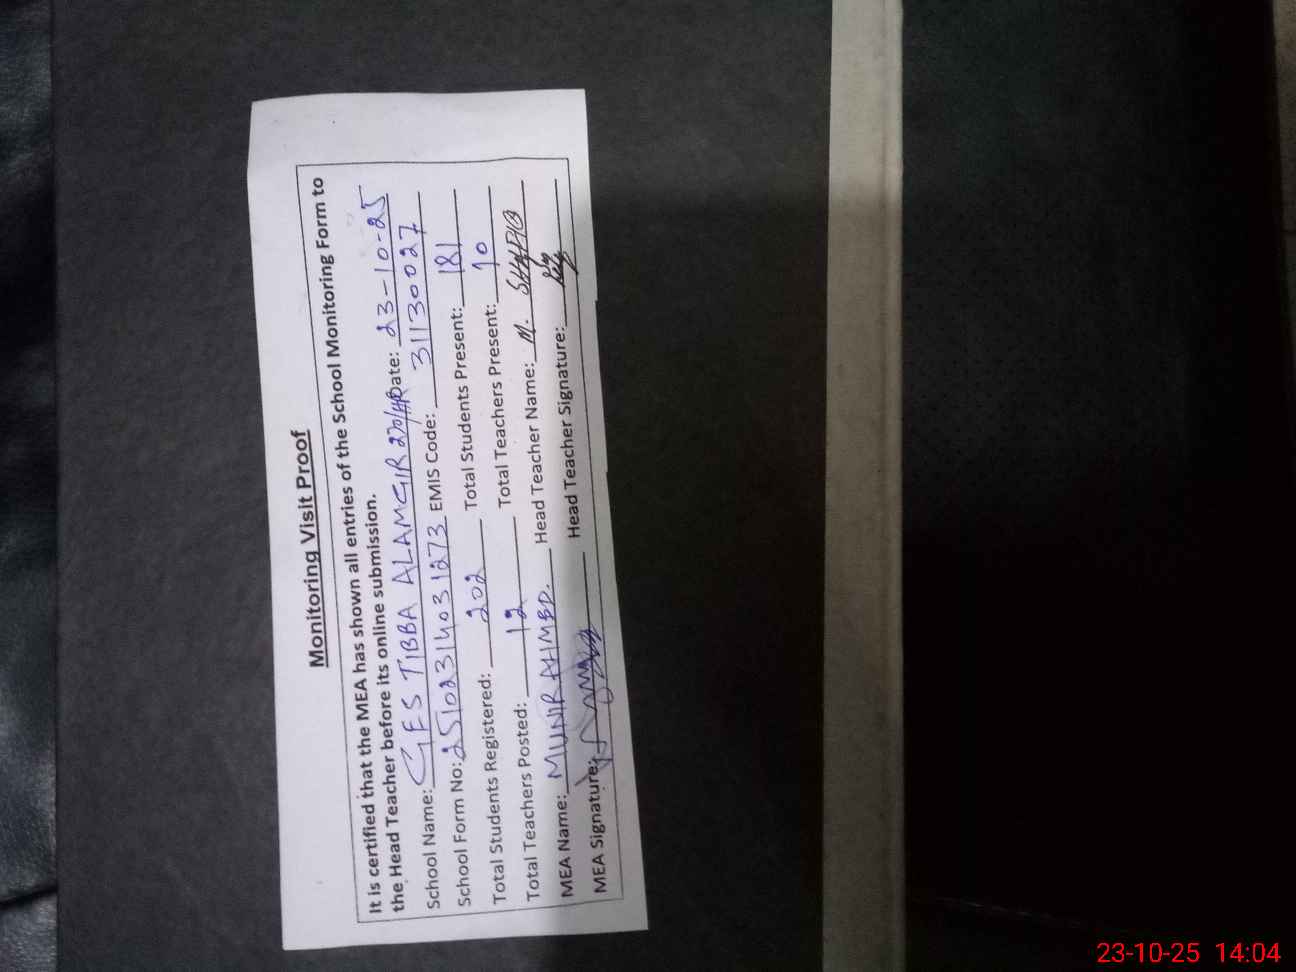 Monitoring Visit Proof
It is certified that the MEA has shown all entries of the School Monitoring Form to
the Head Teacher before its online submission.
School Name: GES TIBBA ALAMGIR Date: 23-10-25
School Form No: 25102314031273 EMIS Code: 31130027
Total Students Registered: 202 Total Students Present: 181
Total Teachers Posted: 12 Total Teachers Present: 10
MEA Name: MUNIR AHMED. Head Teacher Name: M. SHAFIQ
MEA Signature: Head Teacher Signature:
23-10-25 14:04